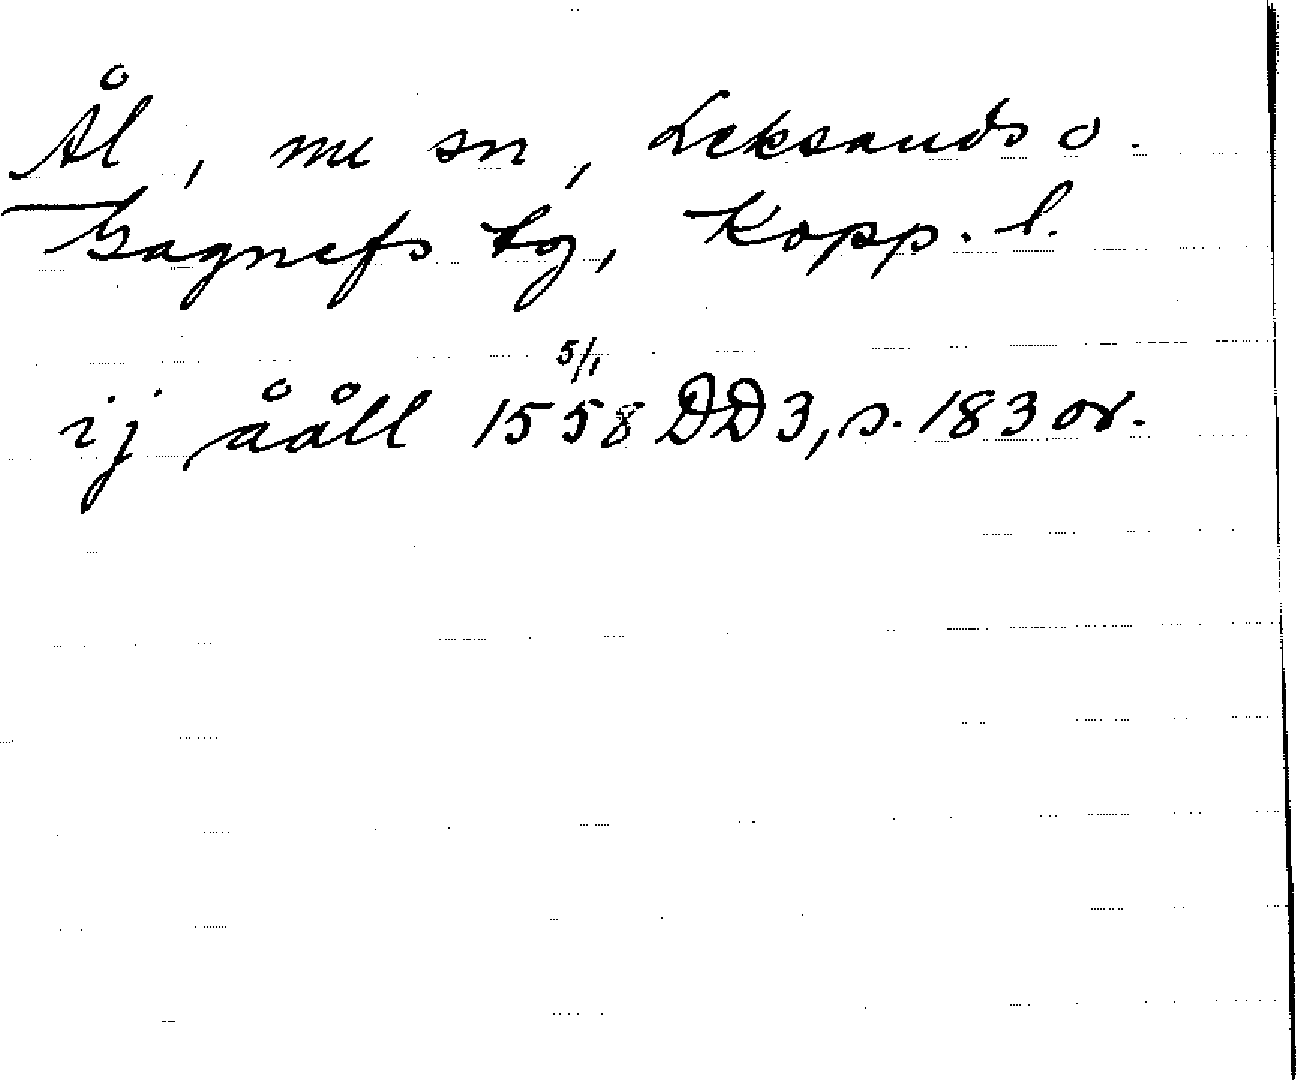 Ål, nu sn, Leksands o.
Gagnefs tg, Kopp. l.
5/1
ij åål 1558 DD3, s. 183 or.